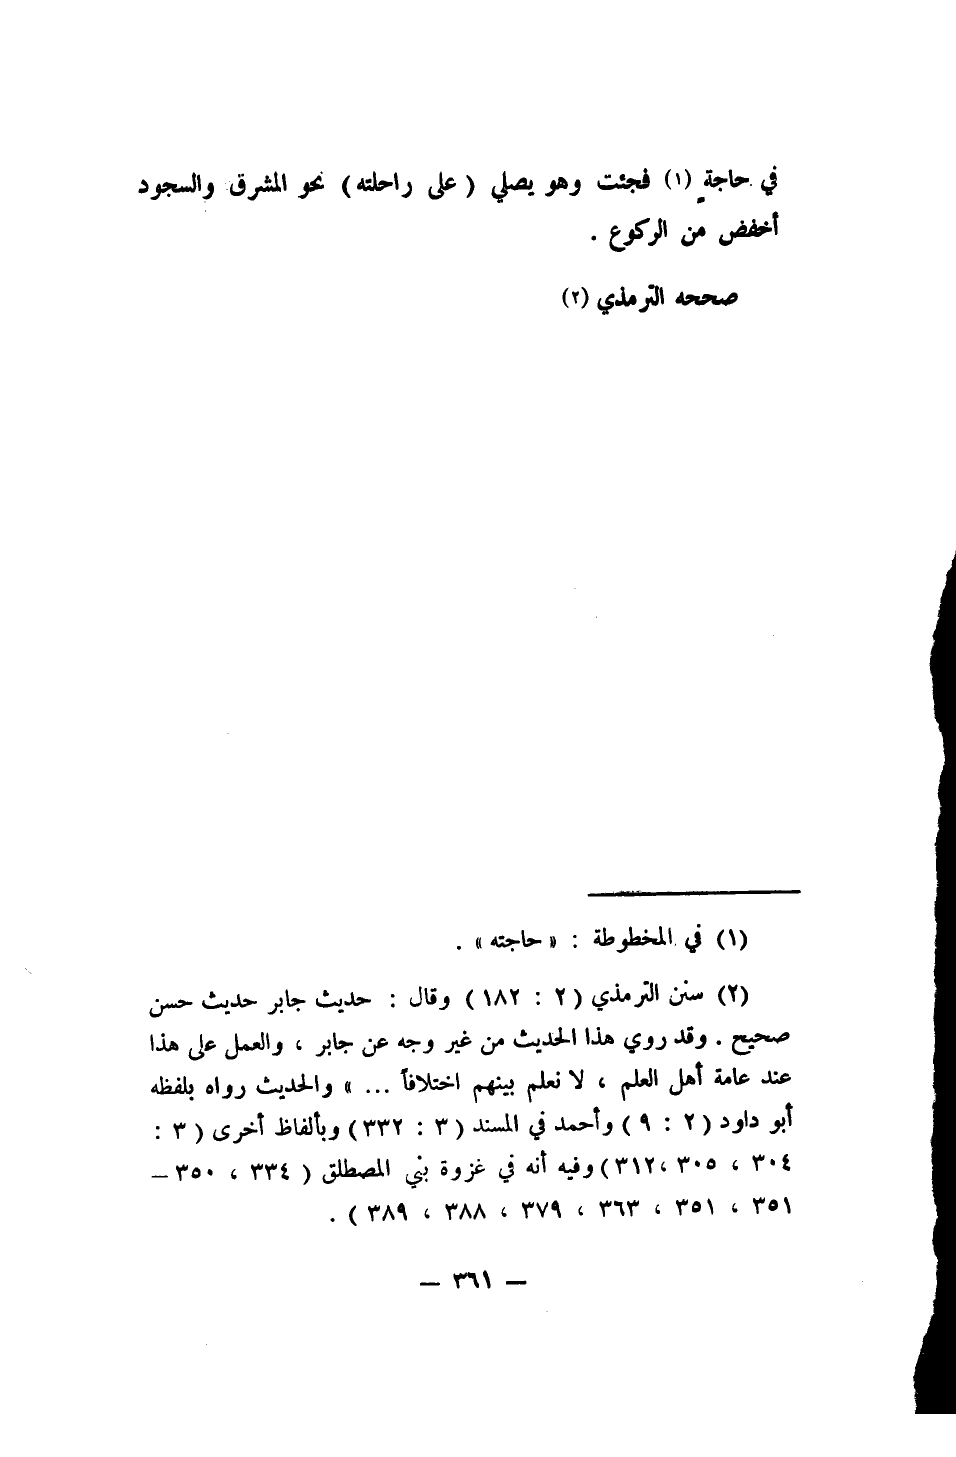 في حاجةٍ (١) فجئت وهو يصلي ( على راحلته ) نحو المشرق والسجود
أخفض من الركوع .
صححه الترمذي (٢)
(١) في المخطوطة : « حاجته » .
(٢) سنن الترمذي ( ٢ : ١٨٢ ) وقال : حديث جابر حديث حسن
صحيح . وقد روي هذا الحديث من غير وجه عن جابر ، والعمل على هذا
عند عامة أهل العلم ، لا نعلم بينهم اختلافاً ... » والحديث رواه بلفظه
أبو داود ( ٢ : ٩ ) وأحمد في المسند ( ٣ : ٣٣٢ ) وبألفاظ أخرى ( ٣ :
٣٠٤ ، ٣٠٥ ،٣١٢) وفيه أنه في غزوة بني المصطلق ( ٣٣٤ ، ٣٥٠ –
٣٥١ ، ٣٥١ ، ٣٦٣ ، ٣٧٩ ، ٣٨٨ ، ٣٨٩ ) .
– ٣٦١ –